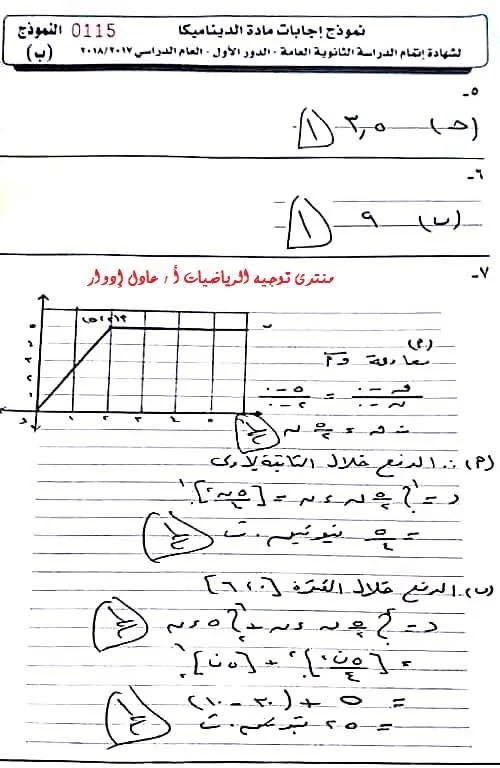 نموذج إجابات مادة الديناميكا
0115 النموذج
لشهادة إتمام الدراسة الثانوية العامة - الدور الأول - العام الدراسي ٢٠١٨/٢٠١٧
(ب)
٥-
(حـ) ٣,٥ ١
٦-
(ب) ٩ ١
٧-
منتدى توجيه الرياضيات أ / عادل إدوار
(٢، ٥) ب
١ ٢ ٣ ٤ ٥
(٢)
معادلة و٢
ق - ٠ / ن - ٠ = ٥ - ٠ / ٢ - ٠
∴ ق = ٥/٢ ن
(٢) ∴ الدفع خلال الثانية الأولى
د = ∫ ٥/٢ ن ءن = [٥ن٢/٤]
= ٥/٤ نيوتن . ث
(ب) الدفع خلال الفترة [٠، ٦]
د = ∫ ٥/٢ ن ءن + ∫ ٥ ءن
= [٥ن٢/٤] + [٥ن]
= ٥ + (٣٠ - ١٠)
= ٢٥ نيوتن . ث